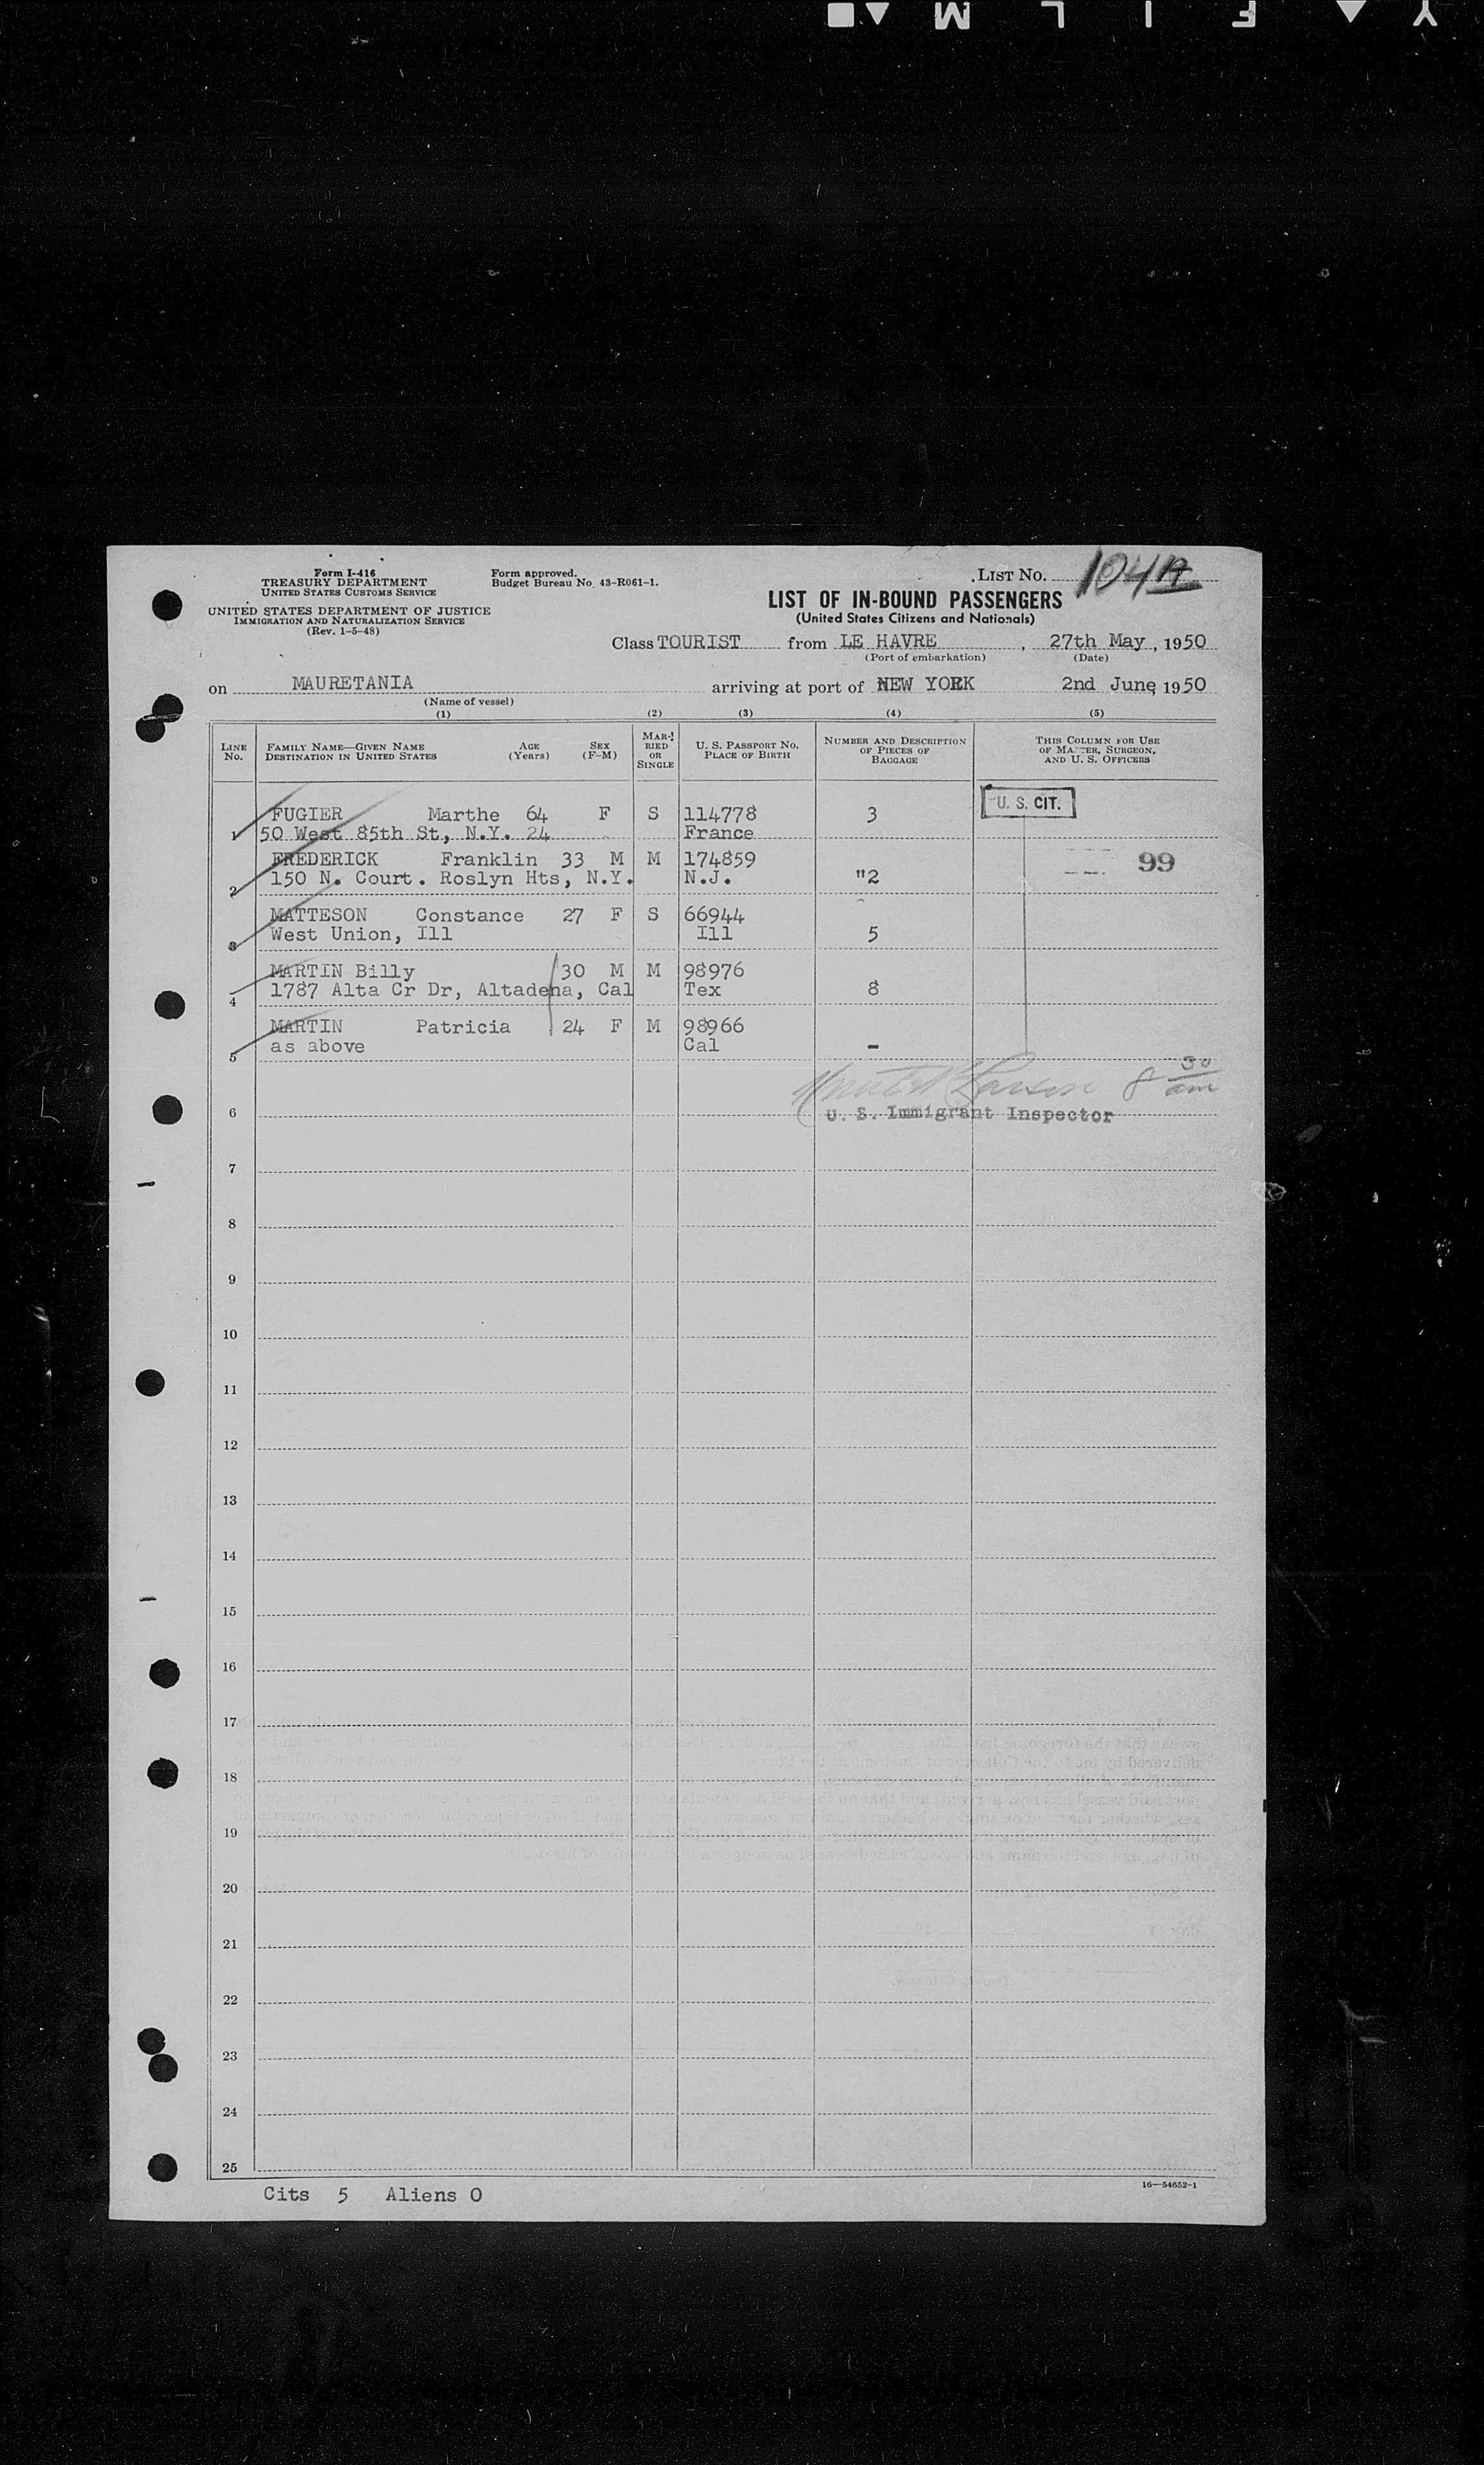 Y ▲ F I L M ▲ ■
Form I-416
TREASURY DEPARTMENT
UNITED STATES CUSTOMS SERVICE
UNITED STATES DEPARTMENT OF JUSTICE
IMMIGRATION AND NATURALIZATION SERVICE
(Rev. 1-5-48)
Form approved.
Budget Bureau No. 43-R061-1.
LIST No. 104A
LIST OF IN-BOUND PASSENGERS
(United States Citizens and Nationals)
Class TOURIST from LE HAVRE, 27th May, 1950
(Port of embarkation) (Date)
on MAURETANIA arriving at port of NEW YORK 2nd June, 1950
(Name of vessel)
(1) (2) (3) (4) (5)
LINE No. FAMILY NAME—GIVEN NAME DESTINATION IN UNITED STATES AGE (Years) SEX (F-M) MARRIED OR SINGLE U. S. PASSPORT No. PLACE OF BIRTH NUMBER AND DESCRIPTION OF PIECES OF BAGGAGE THIS COLUMN FOR USE OF MASTER, SURGEON, AND U. S. OFFICERS
FUGIER Marthe 64 F S 114778 3 U. S. CIT.
1 50 West 85th St, N.Y. 24 France
FREDERICK Franklin 33 M M 174859 99
2 150 N. Court. Roslyn Hts, N.Y. N.J. "2
MATTESON Constance 27 F S 66944
3 West Union, Ill Ill 5
MARTIN Billy 30 M M 98976
4 1787 Alta Cr Dr, Altadena, Cal Tex 8
MARTIN Patricia 24 F M 98966
5 as above Cal -
8 30 am
6 U. S. Immigrant Inspector
7
8
9
10
11
12
13
14
15
16
17
18
19
20
21
22
23
24
25
Cits 5 Aliens 0
16—54652-1